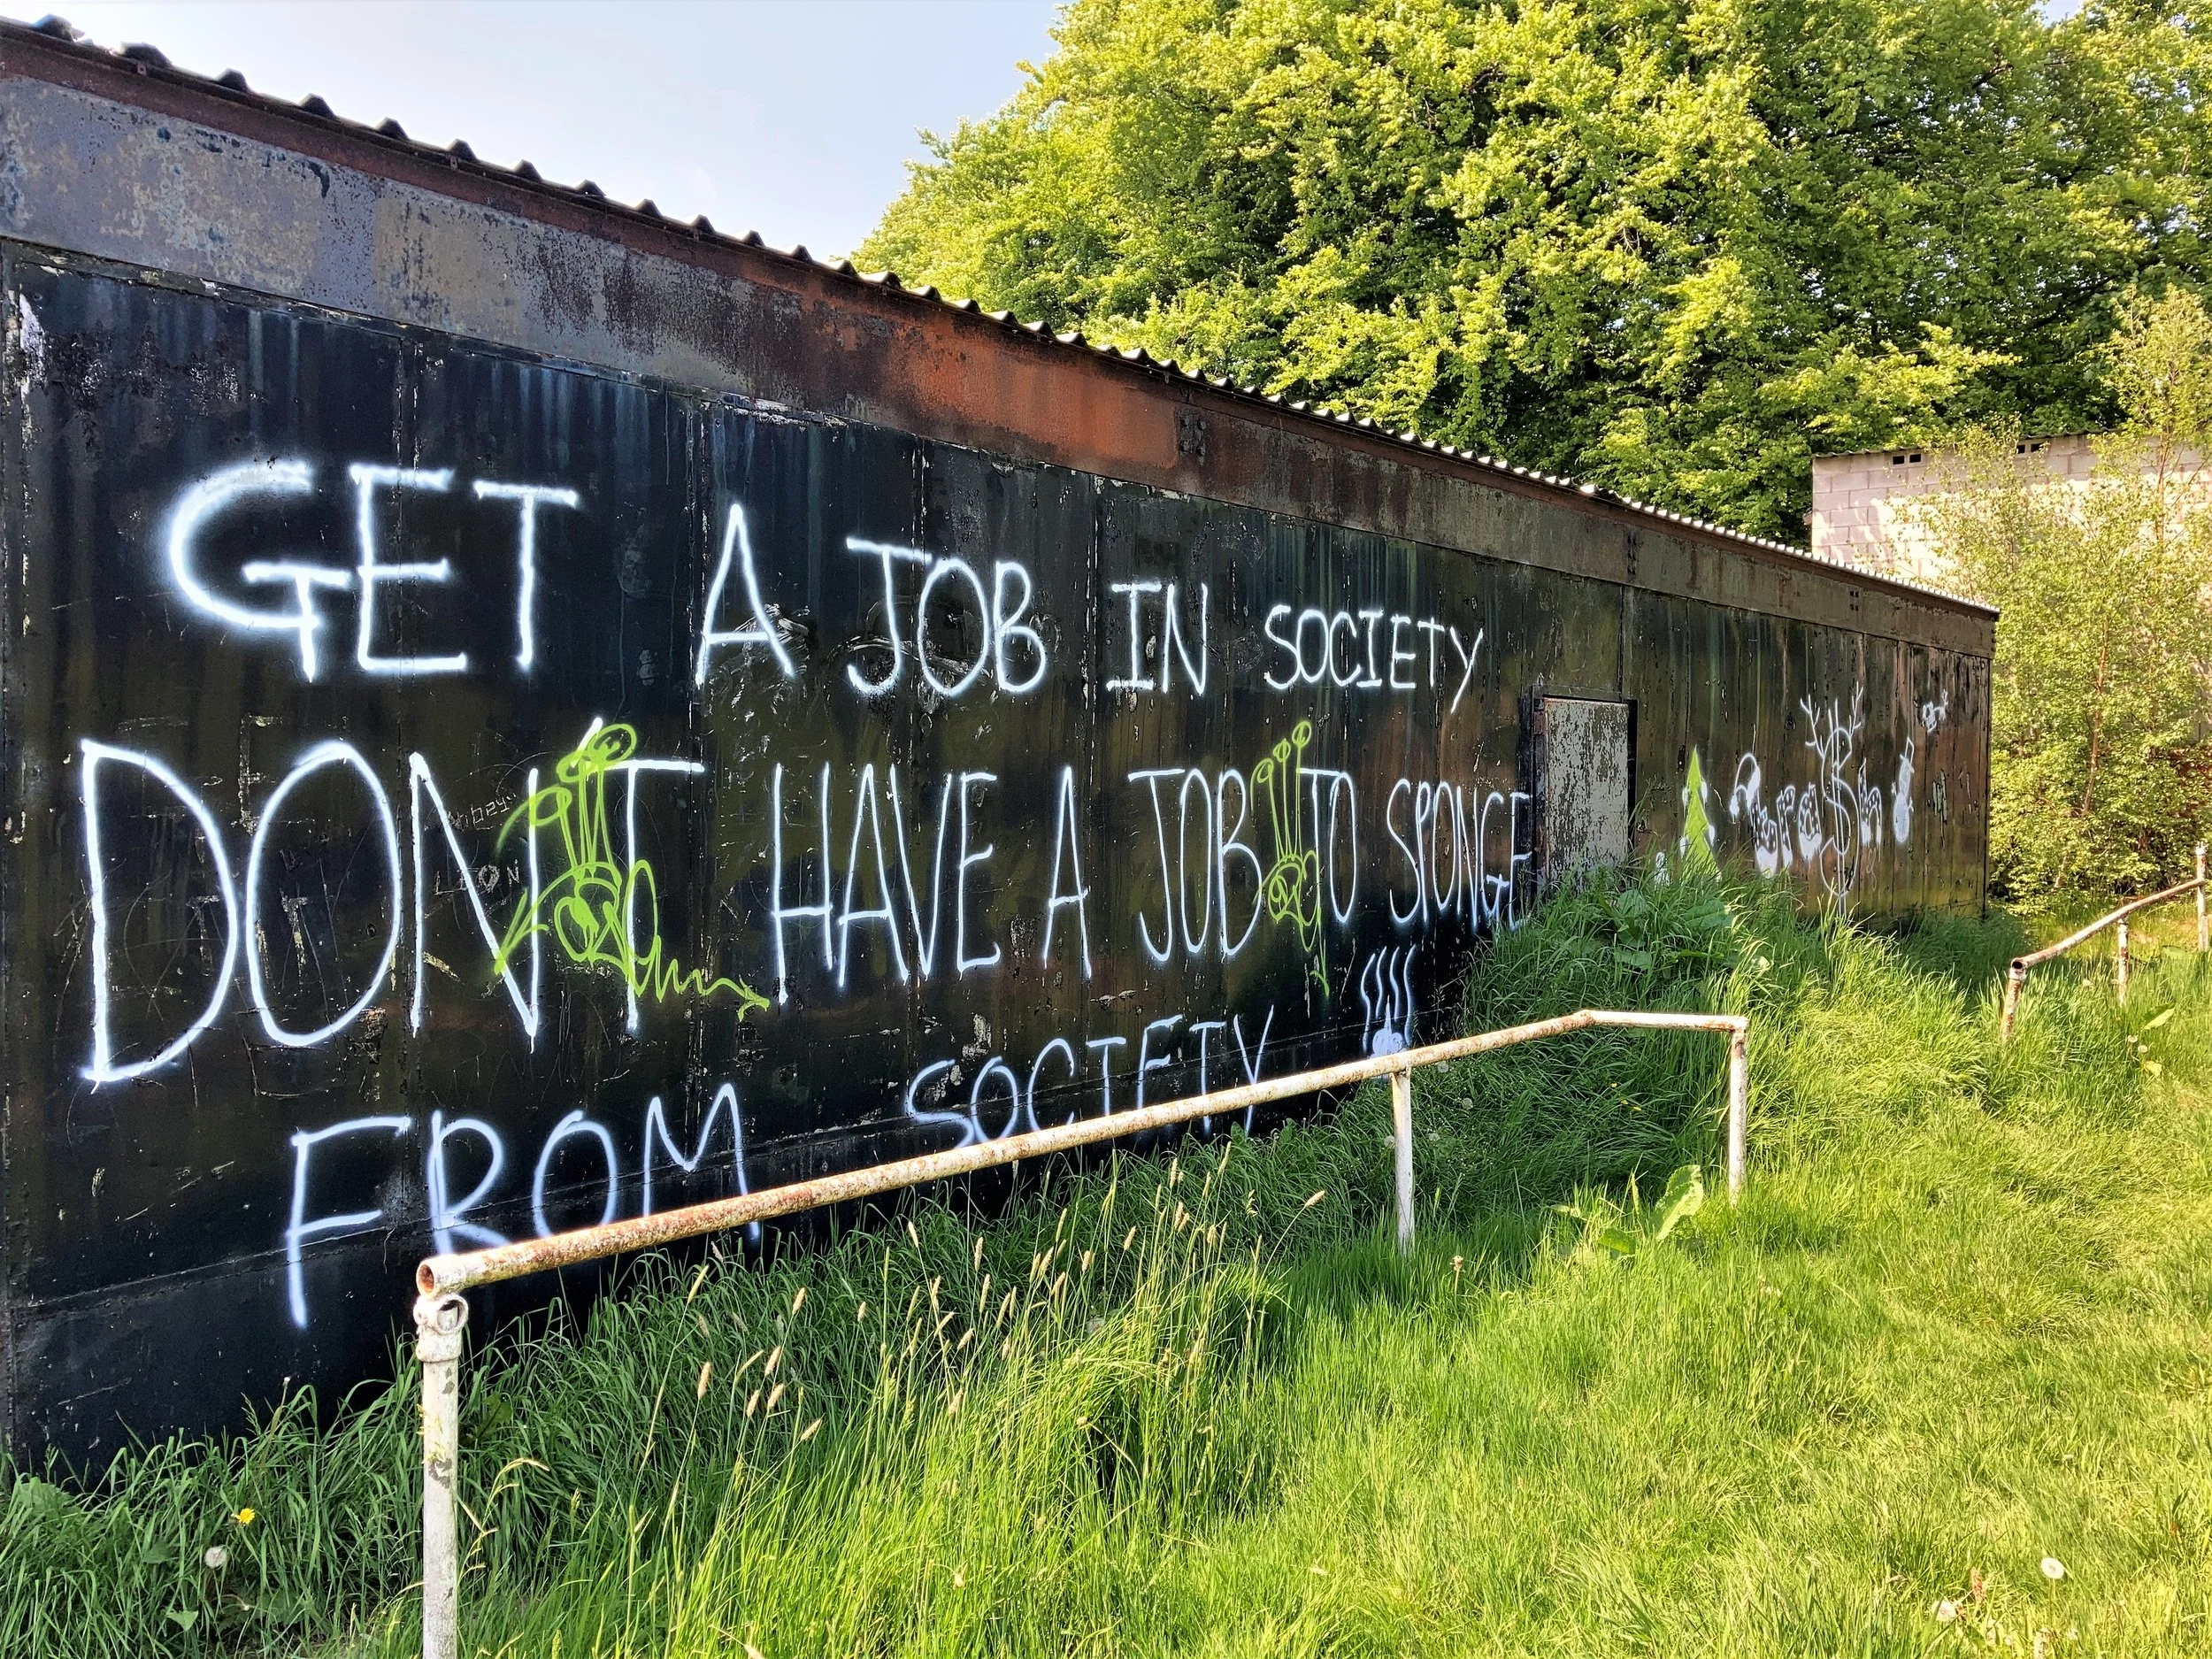 GET A JOB IN SOCIETY
DON'T HAVE A JOB TO SPONGE
FROM SOCIETY